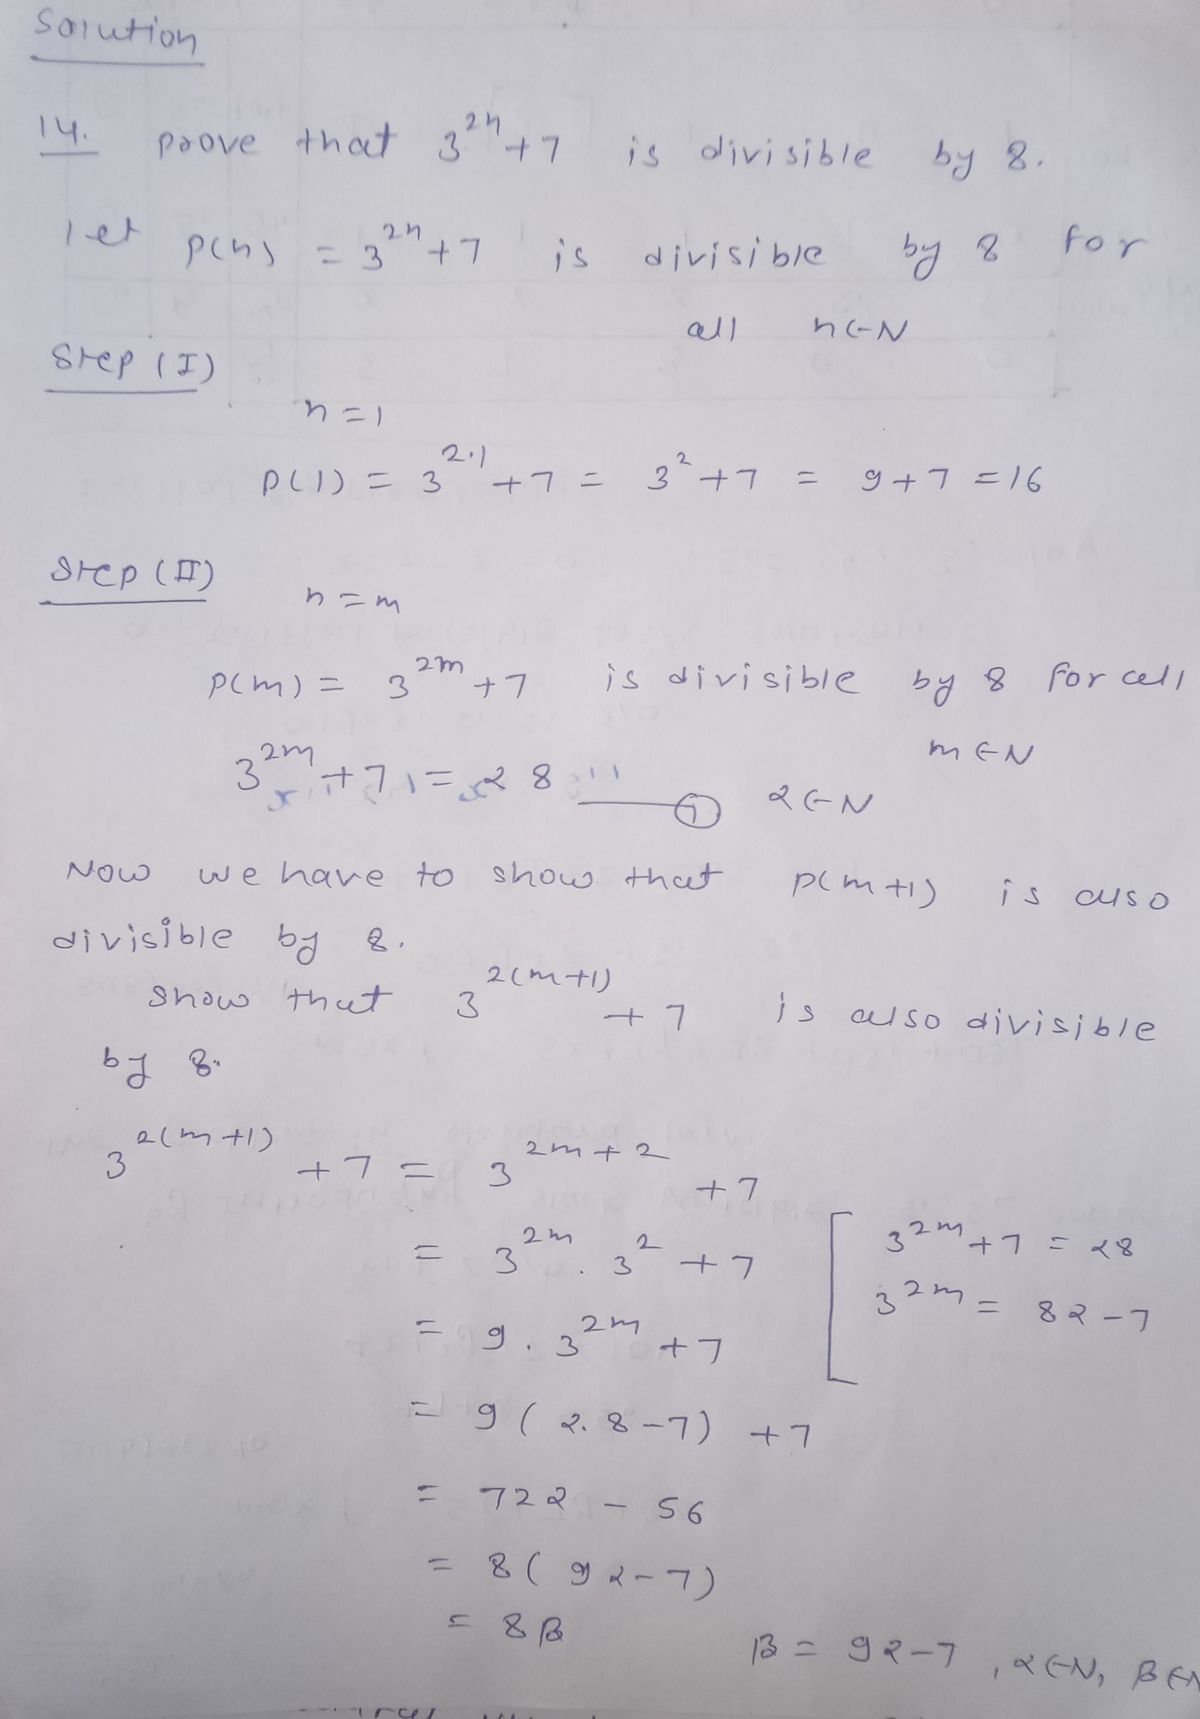 Solution
14. prove that 3^{2n}+7 is divisible by 8.
let p(n) = 3^{2n}+7 is divisible by 8 for
all n∈N
Step (I)
n=1
p(1) = 3^{2.1}+7 = 3^2+7 = 9+7 =16
Step (II)
n=m
p(m) = 3^{2m}+7 is divisible by 8 for all
m∈N
3^{2m}+7 = α 8 —— ① α∈N
Now we have to show that p(m+1) is also
divisible by 8.
Show that 3^{2(m+1)}+7 is also divisible
by 8.
3^{2(m+1)}+7 = 3^{2m+2}+7
= 3^{2m}.3^2+7 [ 3^{2m}+7 = α8
= 9.3^{2m}+7 3^{2m} = 8α-7
= 9(α.8-7)+7
= 72α - 56
= 8(9α-7)
= 8β
β = 9α-7, α∈N, β∈N